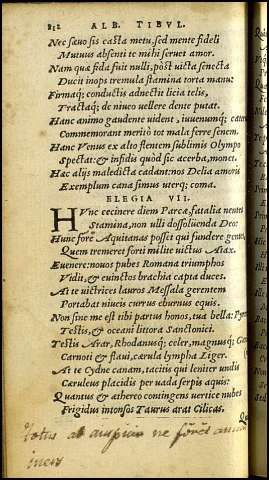 812 ALB. TIBVL.
Nec sæuo sis casta metu, sed mente fideli
Mutuus absenti te mihi seruet amor.
Nam quæ fida fuit nulli, pòst victa senecta
Ducit inops tremula stamina torta manu:
Firmaq; conductis adnectit licia telis,
Tractaq; de niueo vellere dente putat.
Hanc animo gaudente vident, iuuenumq;
Commemorant meritò tot mala ferre senem.
Hanc Venus ex alto flentem sublimis Olympo
Spectat: & infidis quòd sit acerba, monet.
Hæc alijs maledicta cadant: nos Delia amoris
Exemplum cana simus uterq; coma.
ELEGIA VII.
HVnc cecinere diem Parcæ, fatalia nentes
Stamina, non ulli dissoluenda Deo:
Hunc fore Aquitanas posset qui fundere gentes,
Quem tremeret forti milite victus Atax.
Euenere: nouos pubes Romana triumphos
Vidit, & euinctos brachia capta duces.
At te uictrices lauros Messala gerentem
Portabat niueis currus eburnus equis.
Non sine me est tibi partus honos, tua bella:
Testis, & oceani littora Sanctonici.
Testis Arar, Rhodanusq; celer, magnusq;
Carnoti & flaui, cærula lympha Liger.
At te Cydne canam, tacitis qui leniter undis
Cæruleus placidis per uada serpis aquis:
Quantus & æthereo contingens uertice nubes
Frigidus intonsos Taurus arat Cilicas.
totus ab auspicin ne